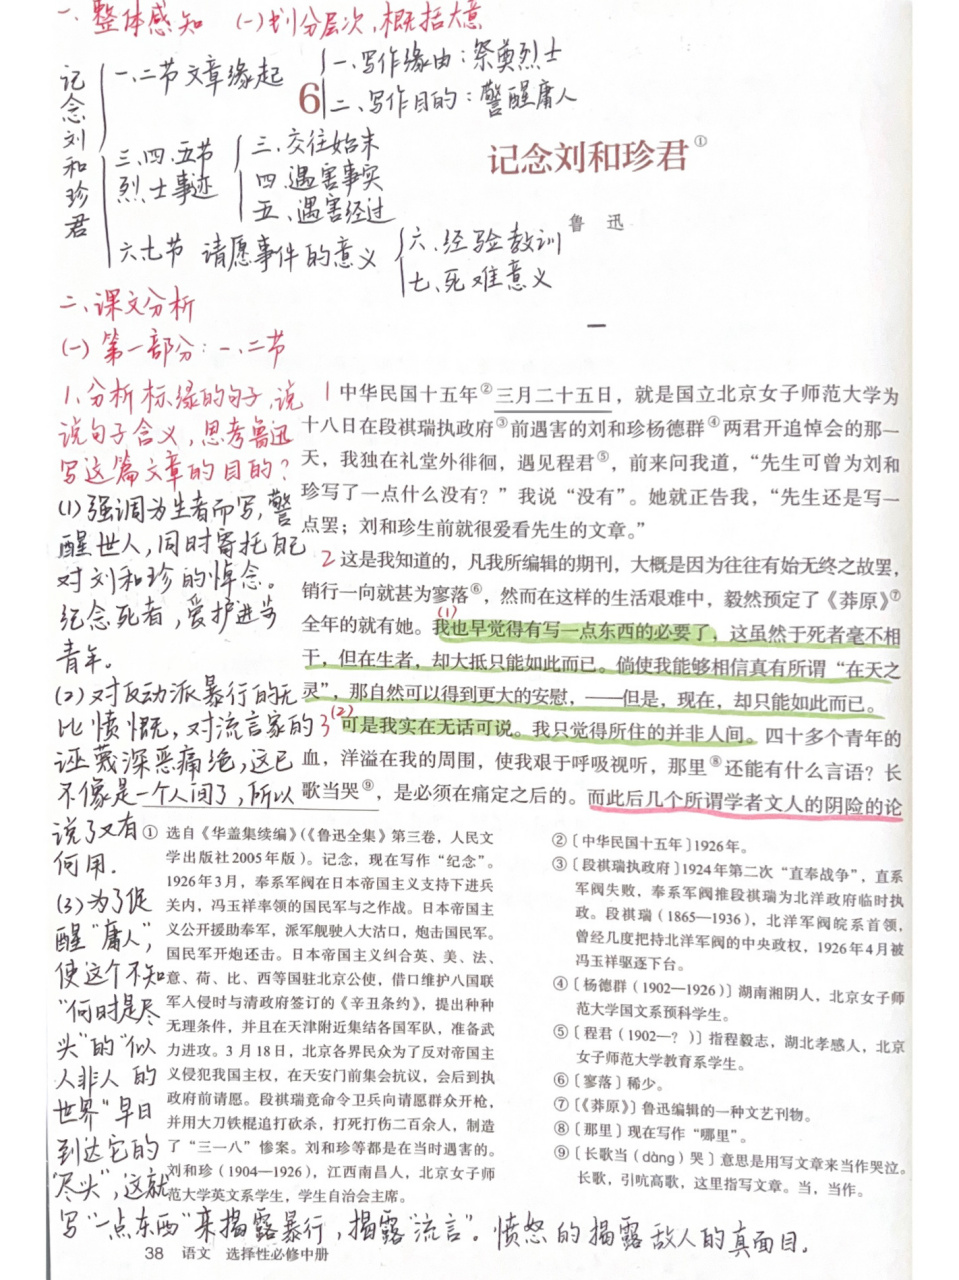 一、整体感知 (一)划分层次,概括大意
记念刘和珍君
一、二节文章缘起
一、写作缘由:祭奠烈士
二、写作目的:警醒庸人
三、四、五节
烈士事迹
三、交往始末
四、遇害事实
五、遇害经过
六七节 请愿事件的意义
六、经验教训
七、死难意义
6
记念刘和珍君①
鲁迅
二、课文分析
(一)第一部分:一、二节
1、分析标绿的句子,说
说句子含义,思考鲁迅
写这篇文章的目的?
(1)强调为生者而写,警
醒世人,同时寄托自己
对刘和珍的悼念。
纪念死者,爱护进步
青年。
(2)对反动派暴行的无
比愤慨,对流言家的
诬蔑深恶痛绝,这已
不像是一个人间了,所以
说了又有
何用.
(3)为了促
醒“庸人”,
使这个不知
“何时是尽
头”的“似
人非人的
世界”早日
到达它的
“尽头”,这就
写“一点东西”来揭露暴行,揭露“流言”。愤怒的揭露敌人的真面目.
一
1 中华民国十五年②三月二十五日,就是国立北京女子师范大学为
十八日在段祺瑞执政府③前遇害的刘和珍杨德群④两君开追悼会的那一
天,我独在礼堂外徘徊,遇见程君⑤,前来问我道,“先生可曾为刘和
珍写了一点什么没有?”我说“没有”。她就正告我,“先生还是写一
点罢;刘和珍生前就很爱看先生的文章。”
2 这是我知道的,凡我所编辑的期刊,大概是因为往往有始无终之故罢,
销行一向就甚为寥落⑥,然而在这样的生活艰难中,毅然预定了《莽原》⑦
全年的就有她。(1)我也早觉得有写一点东西的必要了,这虽然于死者毫不相
干,但在生者,却大抵只能如此而已。倘使我能够相信真有所谓“在天之
灵”,那自然可以得到更大的安慰,——但是,现在,却只能如此而已。
3 (2)可是我实在无话可说。我只觉得所住的并非人间。四十多个青年的
血,洋溢在我的周围,使我艰于呼吸视听,那里⑧还能有什么言语?长
歌当哭⑨,是必须在痛定之后的。而此后几个所谓学者文人的阴险的论
① 选自《华盖集续编》(《鲁迅全集》第三卷,人民文
学出版社2005年版)。记念,现在写作“纪念”。
1926年3月,奉系军阀在日本帝国主义支持下进兵
关内,冯玉祥率领的国民军与之作战。日本帝国主
义公开援助奉军,派军舰驶入大沽口,炮击国民军。
国民军开炮还击。日本帝国主义纠合英、美、法、
意、荷、比、西等国驻北京公使,借口维护八国联
军入侵时与清政府签订的《辛丑条约》,提出种种
无理条件,并且在天津附近集结各国军队,准备武
力进攻。3月18日,北京各界民众为了反对帝国主
义侵犯我国主权,在天安门前集会抗议,会后到执
政府前请愿。段祺瑞竟命令卫兵向请愿群众开枪,
并用大刀铁棍追打砍杀,打死打伤二百余人,制造
了“三一八”惨案。刘和珍等都是在当时遇害的。
刘和珍(1904—1926),江西南昌人,北京女子师
范大学英文系学生,学生自治会主席。
②〔中华民国十五年〕1926年。
③〔段祺瑞执政府〕1924年第二次“直奉战争”,直系
军阀失败,奉系军阀推段祺瑞为北洋政府临时执
政。段祺瑞(1865—1936),北洋军阀皖系首领,
曾经几度把持北洋军阀的中央政权,1926年4月被
冯玉祥驱逐下台。
④〔杨德群(1902—1926)〕湖南湘阴人,北京女子师
范大学国文系预科学生。
⑤〔程君(1902—?)〕指程毅志,湖北孝感人,北京
女子师范大学教育系学生。
⑥〔寥落〕稀少。
⑦〔《莽原》〕鲁迅编辑的一种文艺刊物。
⑧〔那里〕现在写作“哪里”。
⑨〔长歌当(dàng)哭〕意思是用写文章来当作哭泣。
长歌,引吭高歌,这里指写文章。当,当作。
38 语文 选择性必修中册